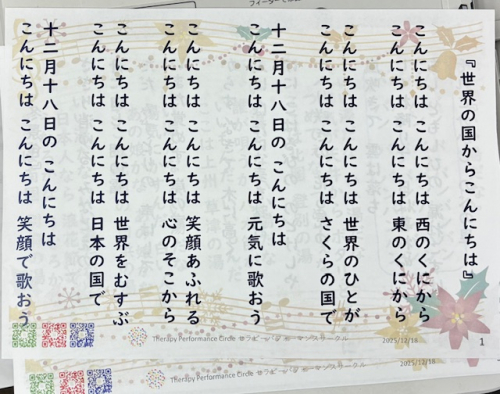 『世界の国からこんにちは』
こんにちは こんにちは 西のくにから
こんにちは こんにちは 東のくにから
こんにちは こんにちは 世界のひとが
こんにちは こんにちは さくらの国で
十二月十八日の こんにちは
こんにちは こんにちは 元気に歌おう
こんにちは こんにちは 笑顔あふれる
こんにちは こんにちは 心のそこから
こんにちは こんにちは 世界をむすぶ
こんにちは こんにちは 日本の国で
十二月十八日の こんにちは
こんにちは こんにちは 笑顔で歌おう
Therapy Performance Circle セラピーパフォーマンスサークル
2025/12/18
1
Therapy Performance Circle セラピーパフォーマンスサークル
2025/12/18